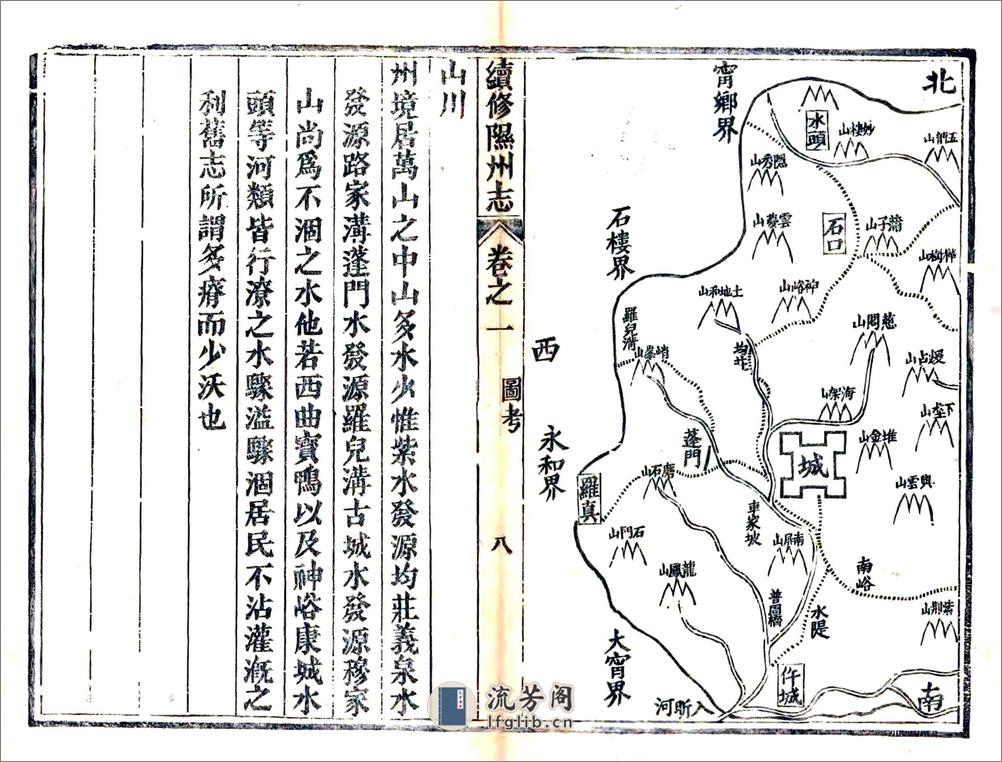 北
南
西
甯鄉界
石樓界
永和界
大甯界
水頭
妙樓山
五鹿山
隱秀山
雲夢山
石口
蒲子山
樺樹山
神峪山
土地和山
慈悶山
羅兒溝
峭峯山
均莊
海架山
堆金山
城
興雲山
蓬門
磨石山
羅真
石門山
車家坡
南屏山
龍鳳山
南峪
紫荊山
水隄
普園橋
仵城
入昕河
續修隰州志
卷之一
圖考
八
山川
州境居萬山之中山多水少惟紫水發源均莊義泉水
發源路家溝蓬門水發源羅兒溝古城水發源穆家
山尚爲不涸之水他若西曲寶鴨以及神峪康城水
頭等河類皆行潦之水驟溢驟涸居民不沾灌漑之
利舊志所謂多瘠而少沃也
流芳阁
lfglib.cn